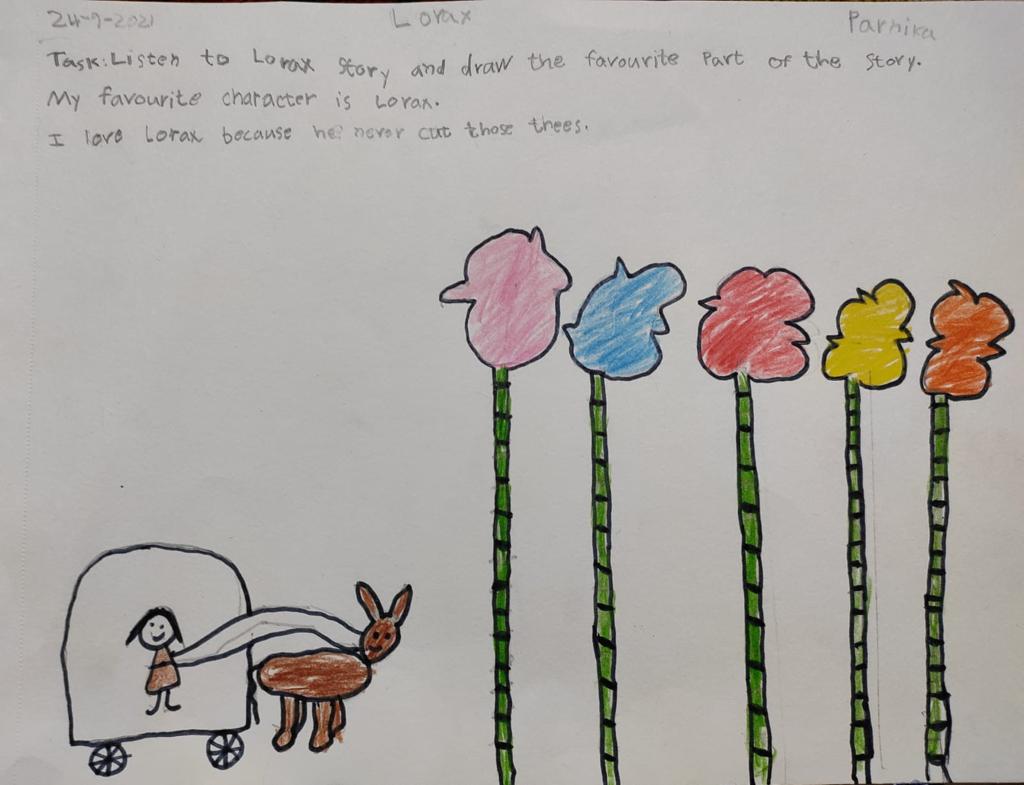 24-9-2021 Lorax Parnika
Task:Listen to Lorax Story and draw the favourite Part of the Story.
My favourite character is Lorax.
I love Lorax because he never cut those thees.